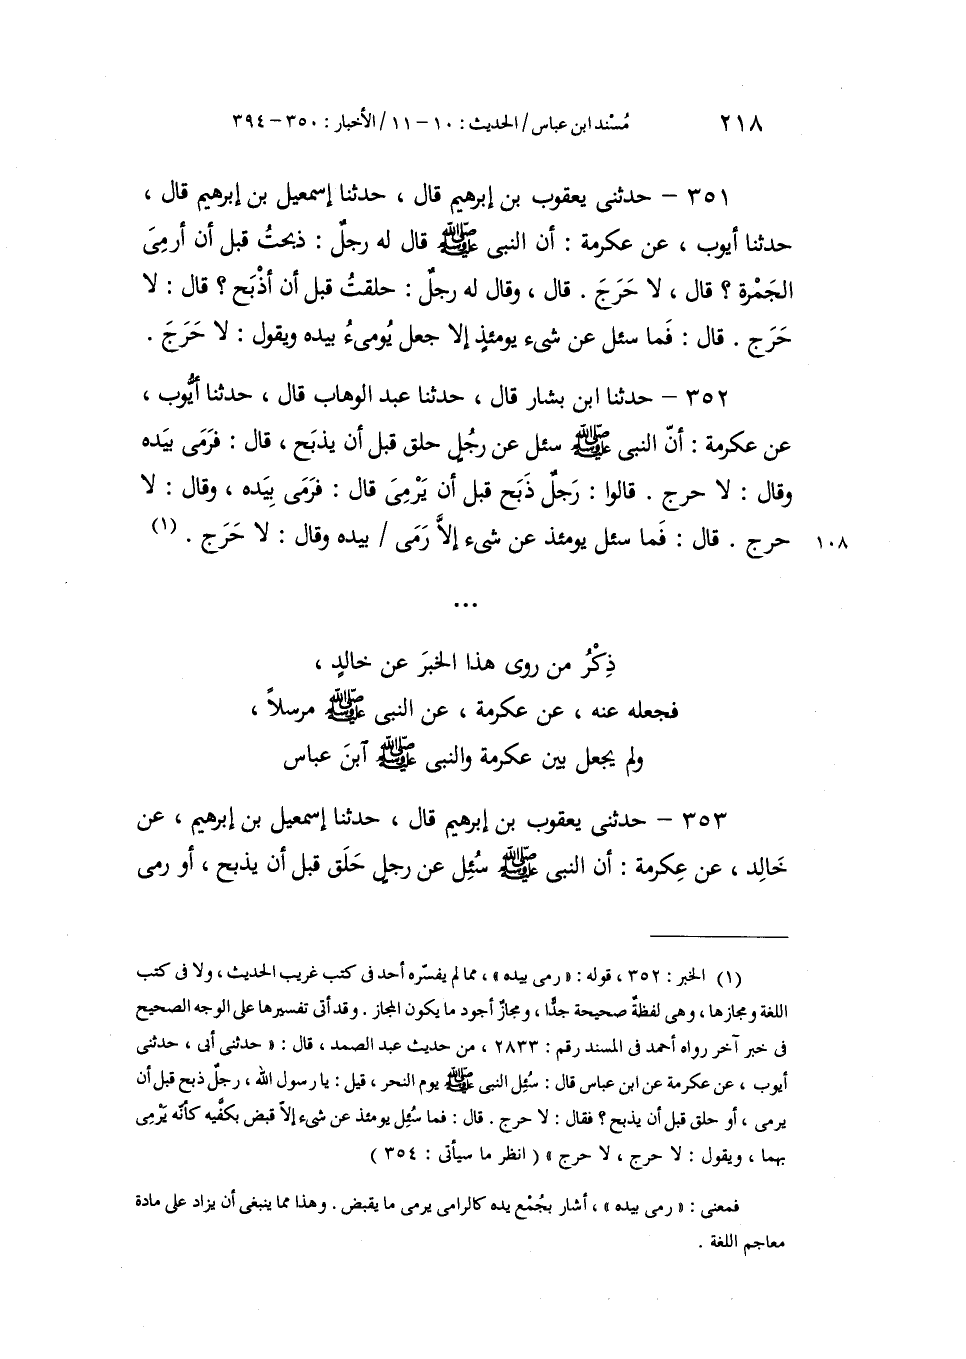 ٢١٨ مُسْند ابن عباس / الحديث : ١٠ – ١١ / الأخبار : ٣٥٠ – ٣٩٤
٣٥١ – حدثنى يعقوب بن إبرهيم قال ، حدثنا إسمعيل بن إبرهيم قال ،
حدثنا أيوب ، عن عكرمة : أن النبى ﷺ قال له رجلٌ : ذبحتُ قبل أن أرمِىَ
الجَمْرة ؟ قال ، لا حَرَجَ . قال ، وقال له رجلٌ : حلقتُ قبل أن أذْبَح ؟ قال : لا
حَرَج . قال : فَما سئل عن شىء يومئذٍ إلا جعل يُومىءُ بيده ويقول : لا حَرَجَ .
٣٥٢ – حدثنا ابن بشار قال ، حدثنا عبد الوهاب قال ، حدثنا أيُّوب ،
عن عكرمة : أنّ النبى ﷺ سئل عن رجُلٍ حلق قبل أن يذبَح ، قال : فرَمَى بيَده
وقال : لا حرج . قالوا : رَجلٌ ذَبَح قبل أن يَرْمِىَ قال : فرَمَى بِيَده ، وقال : لا
حرج . قال : فَما سئل يومئذ عن شىء إلاَّ رَمَى / بيده وقال : لا حَرَج . (١) ١٠٨
...
ذِكْرُ من روى هذا الخبَرَ عن خالدٍ ،
فجعله عنه ، عن عكرمة ، عن النبى ﷺ مرسلاً ،
ولم يجعل بين عكرمة والنبى ﷺ آبنَ عباس
٣٥٣ – حدثنى يعقوب بن إبرهيم قال ، حدثنا إسمعيل بن إبرهيم ، عن
خَالِد ، عن عِكرمة : أن النبى ﷺ سُئِل عن رجلٍ حَلَق قبل أن يذبح ، أو رمى
(١) الخبر : ٣٥٢ ، قوله : « رمى بيده » ، مما لم يفسّره أحد فى كتب غريب الحديث ، ولا فى كتب
اللغة ومجازها ، وهى لفظةٌ صحيحة جدًّا ، ومجازٌ أجود ما يكون المجاز . وقد أتى تفسيرها على الوجه الصحيح
فى خبر آخر رواه أحمد فى المسند رقم : ٢٨٣٣ ، من حديث عبد الصمد ، قال : « حدثنى أبى ، حدثنى
أيوب ، عن عكرمة عن ابن عباس قال : سُئِل النبى ﷺ يوم النحر ، قيل : يا رسول الله ، رجلٌ ذبح قبل أن
يرمى ، أو حلق قبل أن يذبح ؟ فقال : لا حرج . قال : فما سُئِل يومئذ عن شىء إلاّ قبض بكفَّيه كأنّه يَرْمِى
بهما ، ويقول : لا حرج ، لا حرج » ( انظر ما سيأتى : ٣٥٤ )
فمعنى : « رمى بيده » ، أشار بجُمْع يده كالرامى يرمى ما يقبض . وهذا مما ينبغى أن يزاد على مادة
معاجم اللغة .